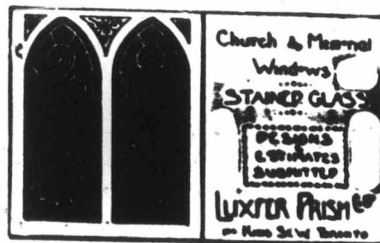 Church & Memorial
Windows
STAINED GLASS
DESIGNS
& ESTIMATES
SUBMITTED
LUXFER PRISM
King St W Toronto